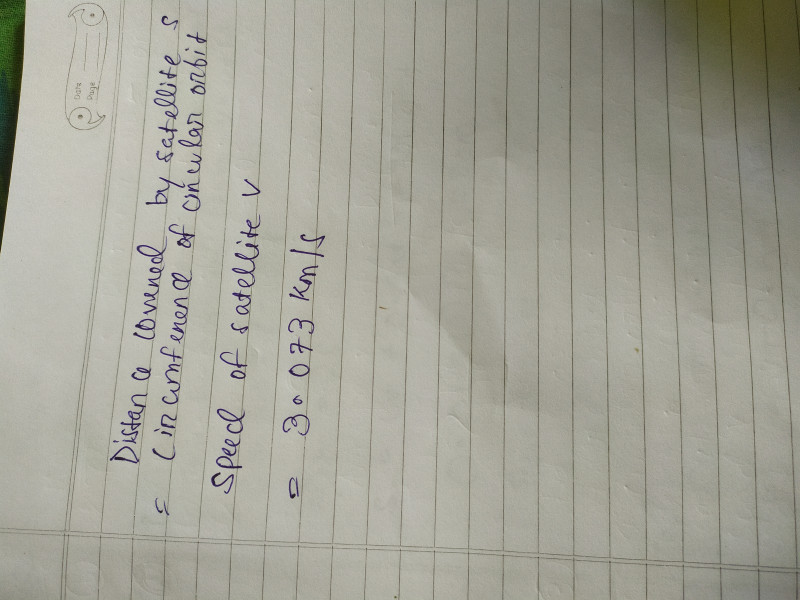 Date
Page
Distance covered by satellite s
= Circumference of circular orbit
Speed of satellite v
= 3.073 km/s